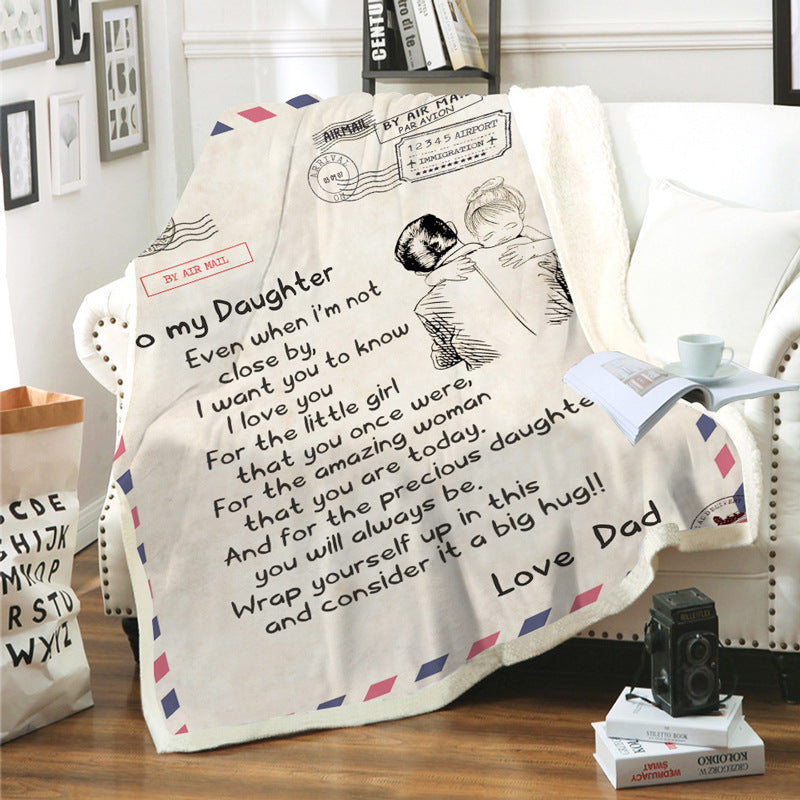 E
CENT
tro di te
AIRMAIL
BY AIR MA
PAR AVION
12345 AIRPORT
IMMIGRATION
ARRIVAL
BY AIR MAIL
o my Daughter
Even when i'm not
close by,
I want you to know
I love you
For the little girl
that you once were,
For the amazing woman
that you are today.
And for the precious daughte
you will always be.
Wrap yourself up in this
and consider it a big hug!!
Love Dad
CDE
HIJK
R STU
WXYZ
ROLLEIFLEX
STILETTO BOOK
WĘDRUJĄCY
ŚWIAT
RYSZARD
KOLODKO